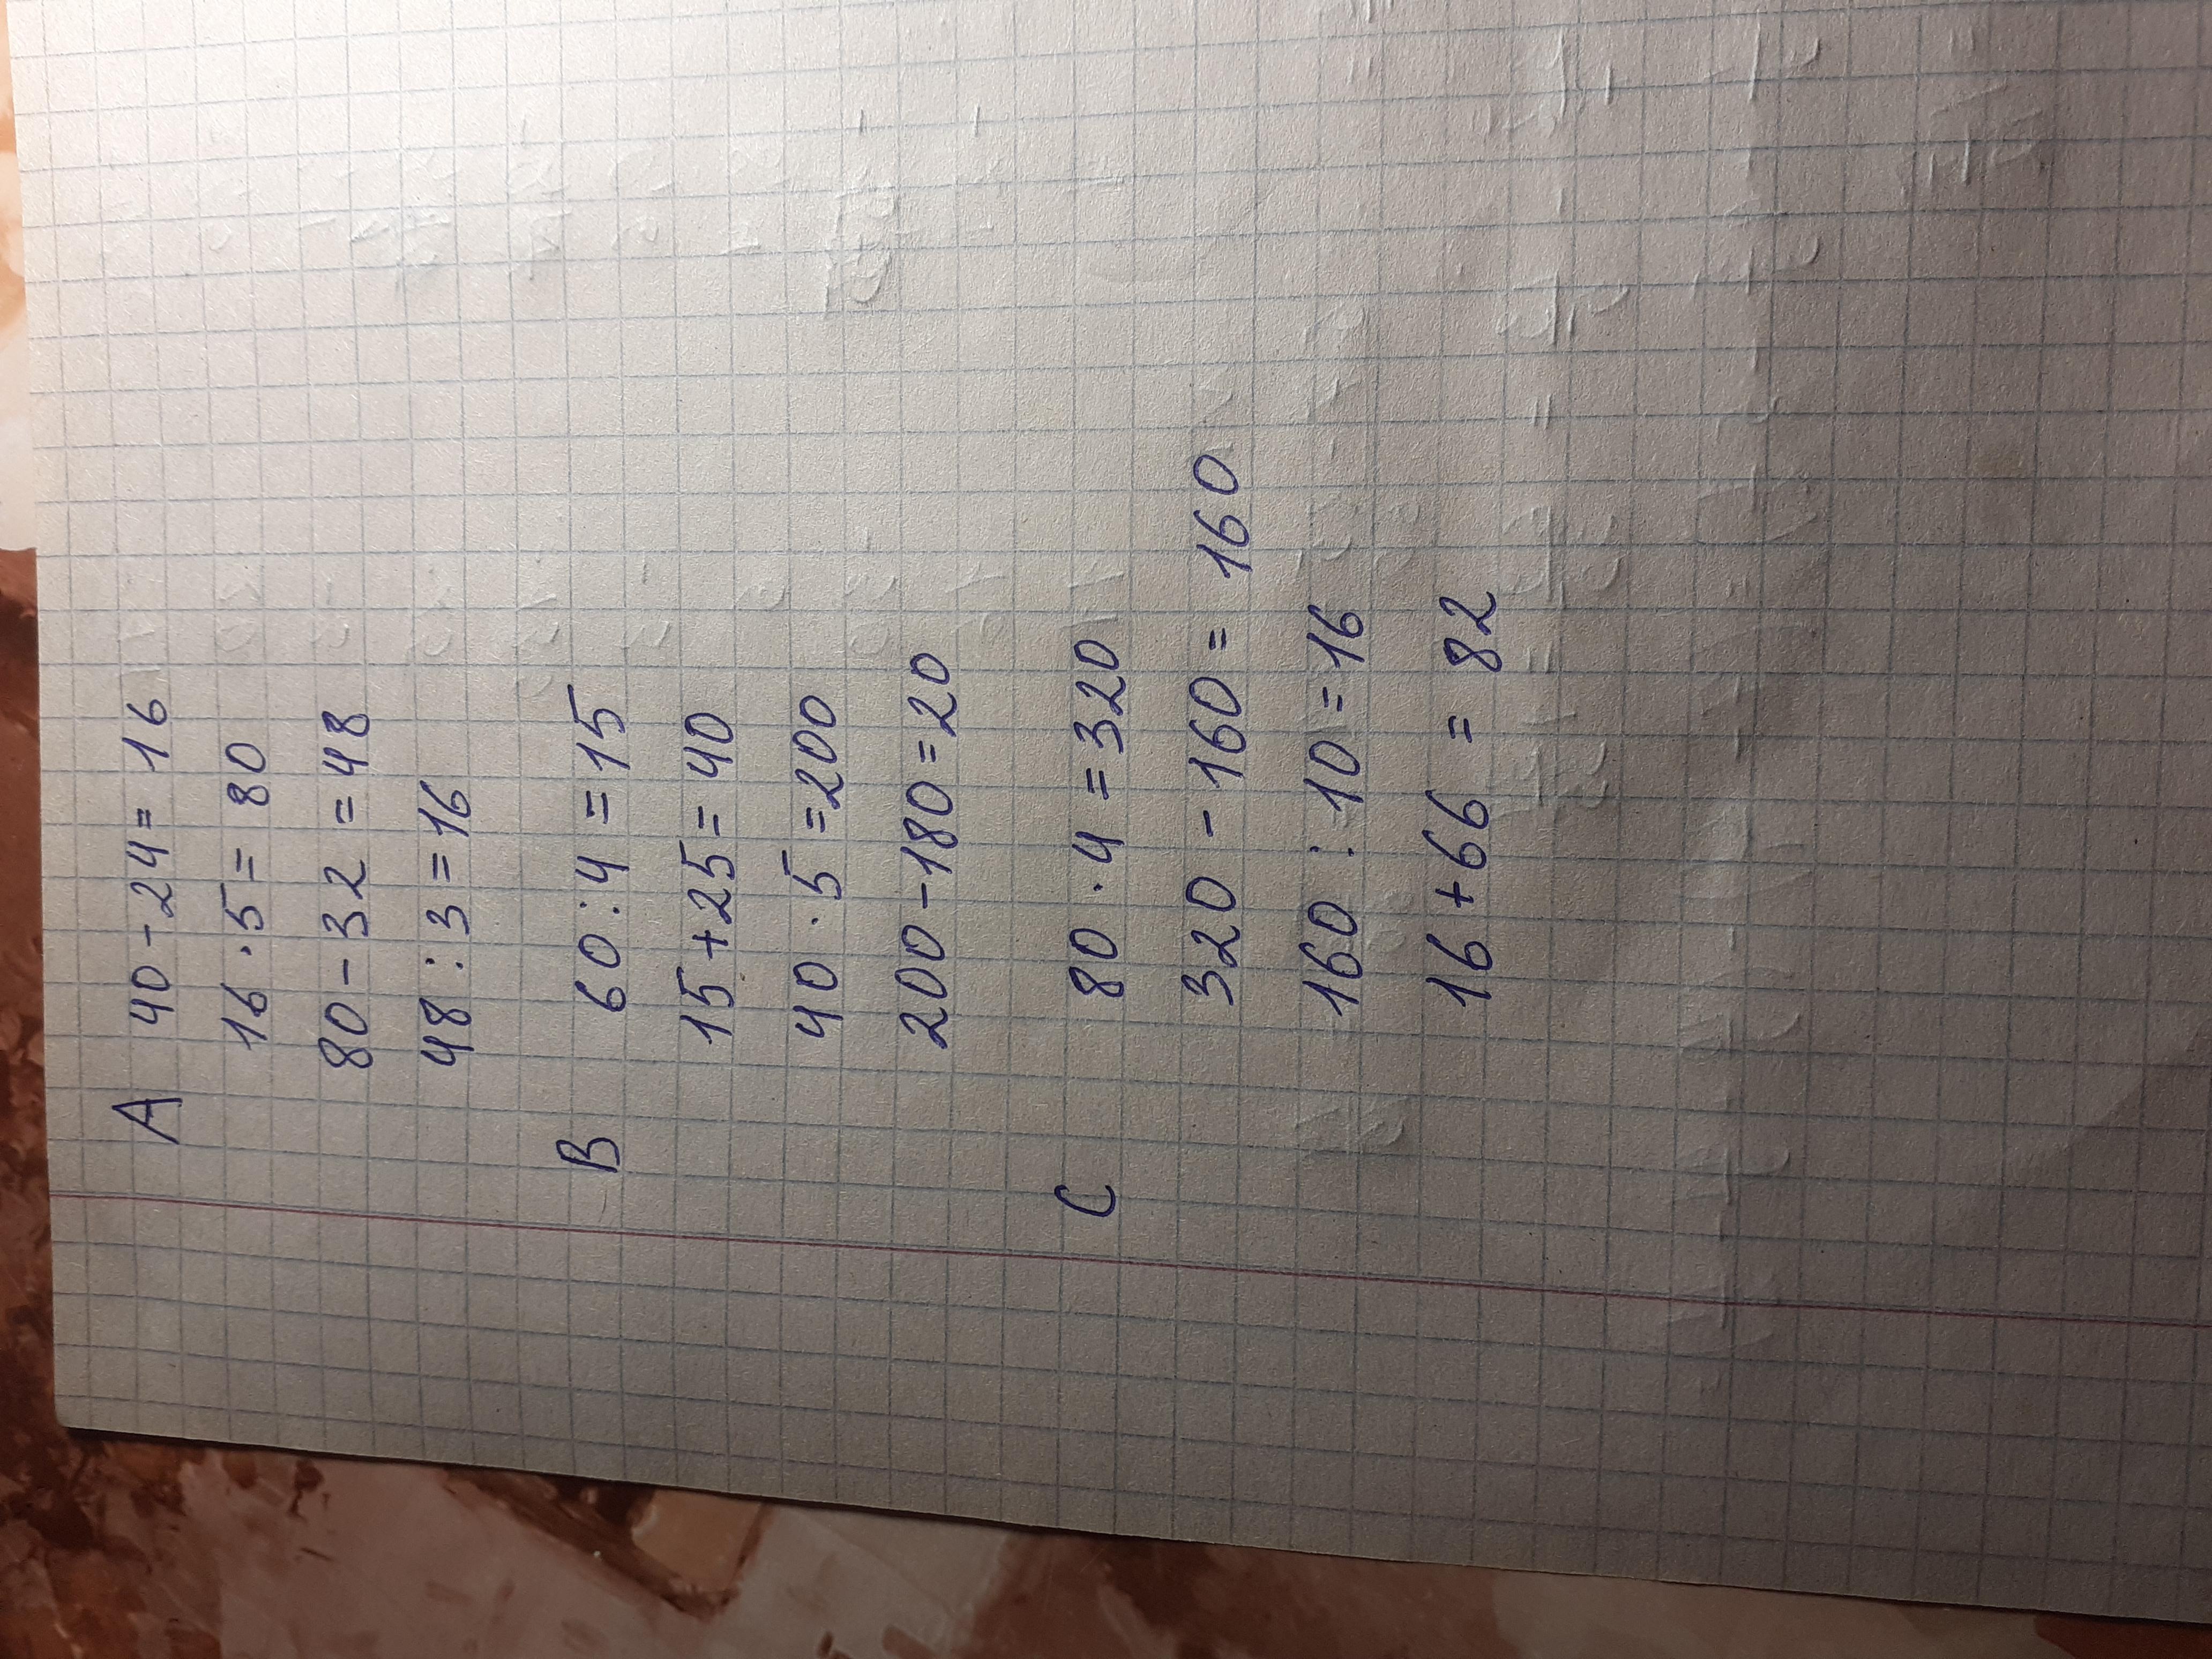 A 40-24=16
16·5=80
80-32=48
48:3=16
B 60:4=15
15+25=40
40·5=200
200-180=20
C 80·4=320
320-160=160
160:10=16
16+66=82